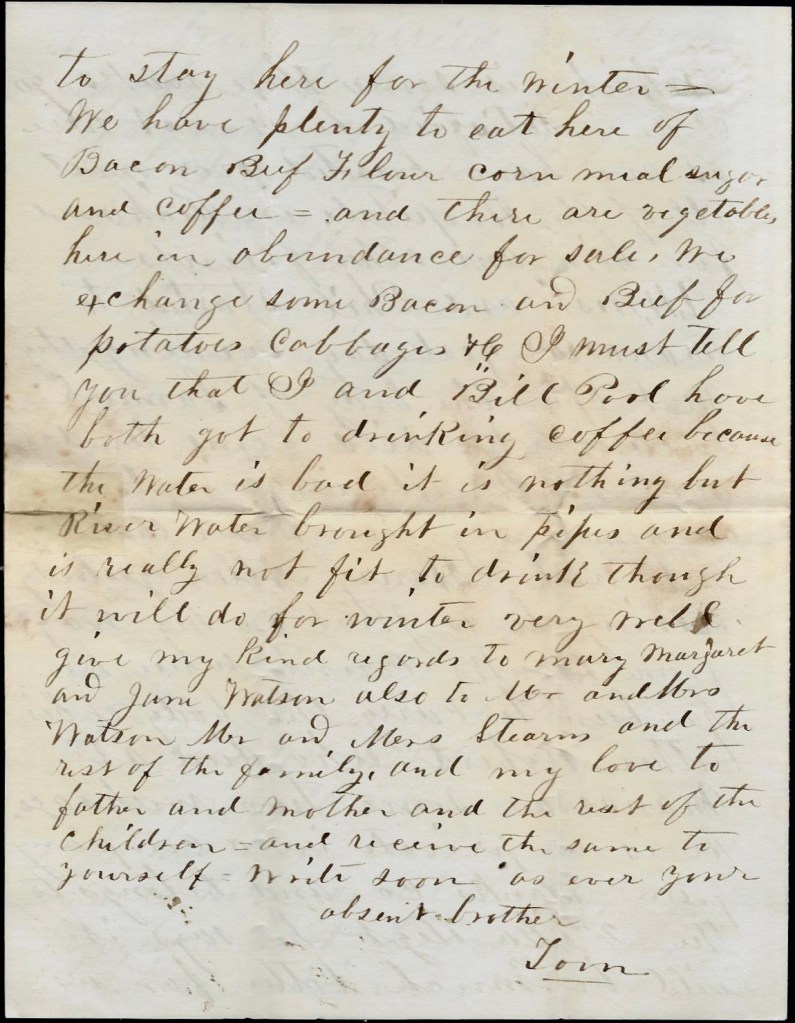 to stay here for the winter =
We have plenty to eat here of
Bacon Beef Flour corn meal sugar
and coffee = and there are vegetables
here in abundance for sale, We
exchange some Bacon and Beef for
potatoes Cabbages &C I must tell
you that I and "Bill Pool have
both got to drinking coffee because
the Water is bad it is nothing but
River Water brought in pipes and
is really not fit to drink though
it will do for winter very well
give my kind regards to mary Margaret
and Jane Watson also to Mr and Mrs
Watson Mr and Mrs Stearns and the
rest of the family, and my love to
father and mother and the rest of the
children = and receive the same to
yourself = Write soon as ever your
absent brother
Tom